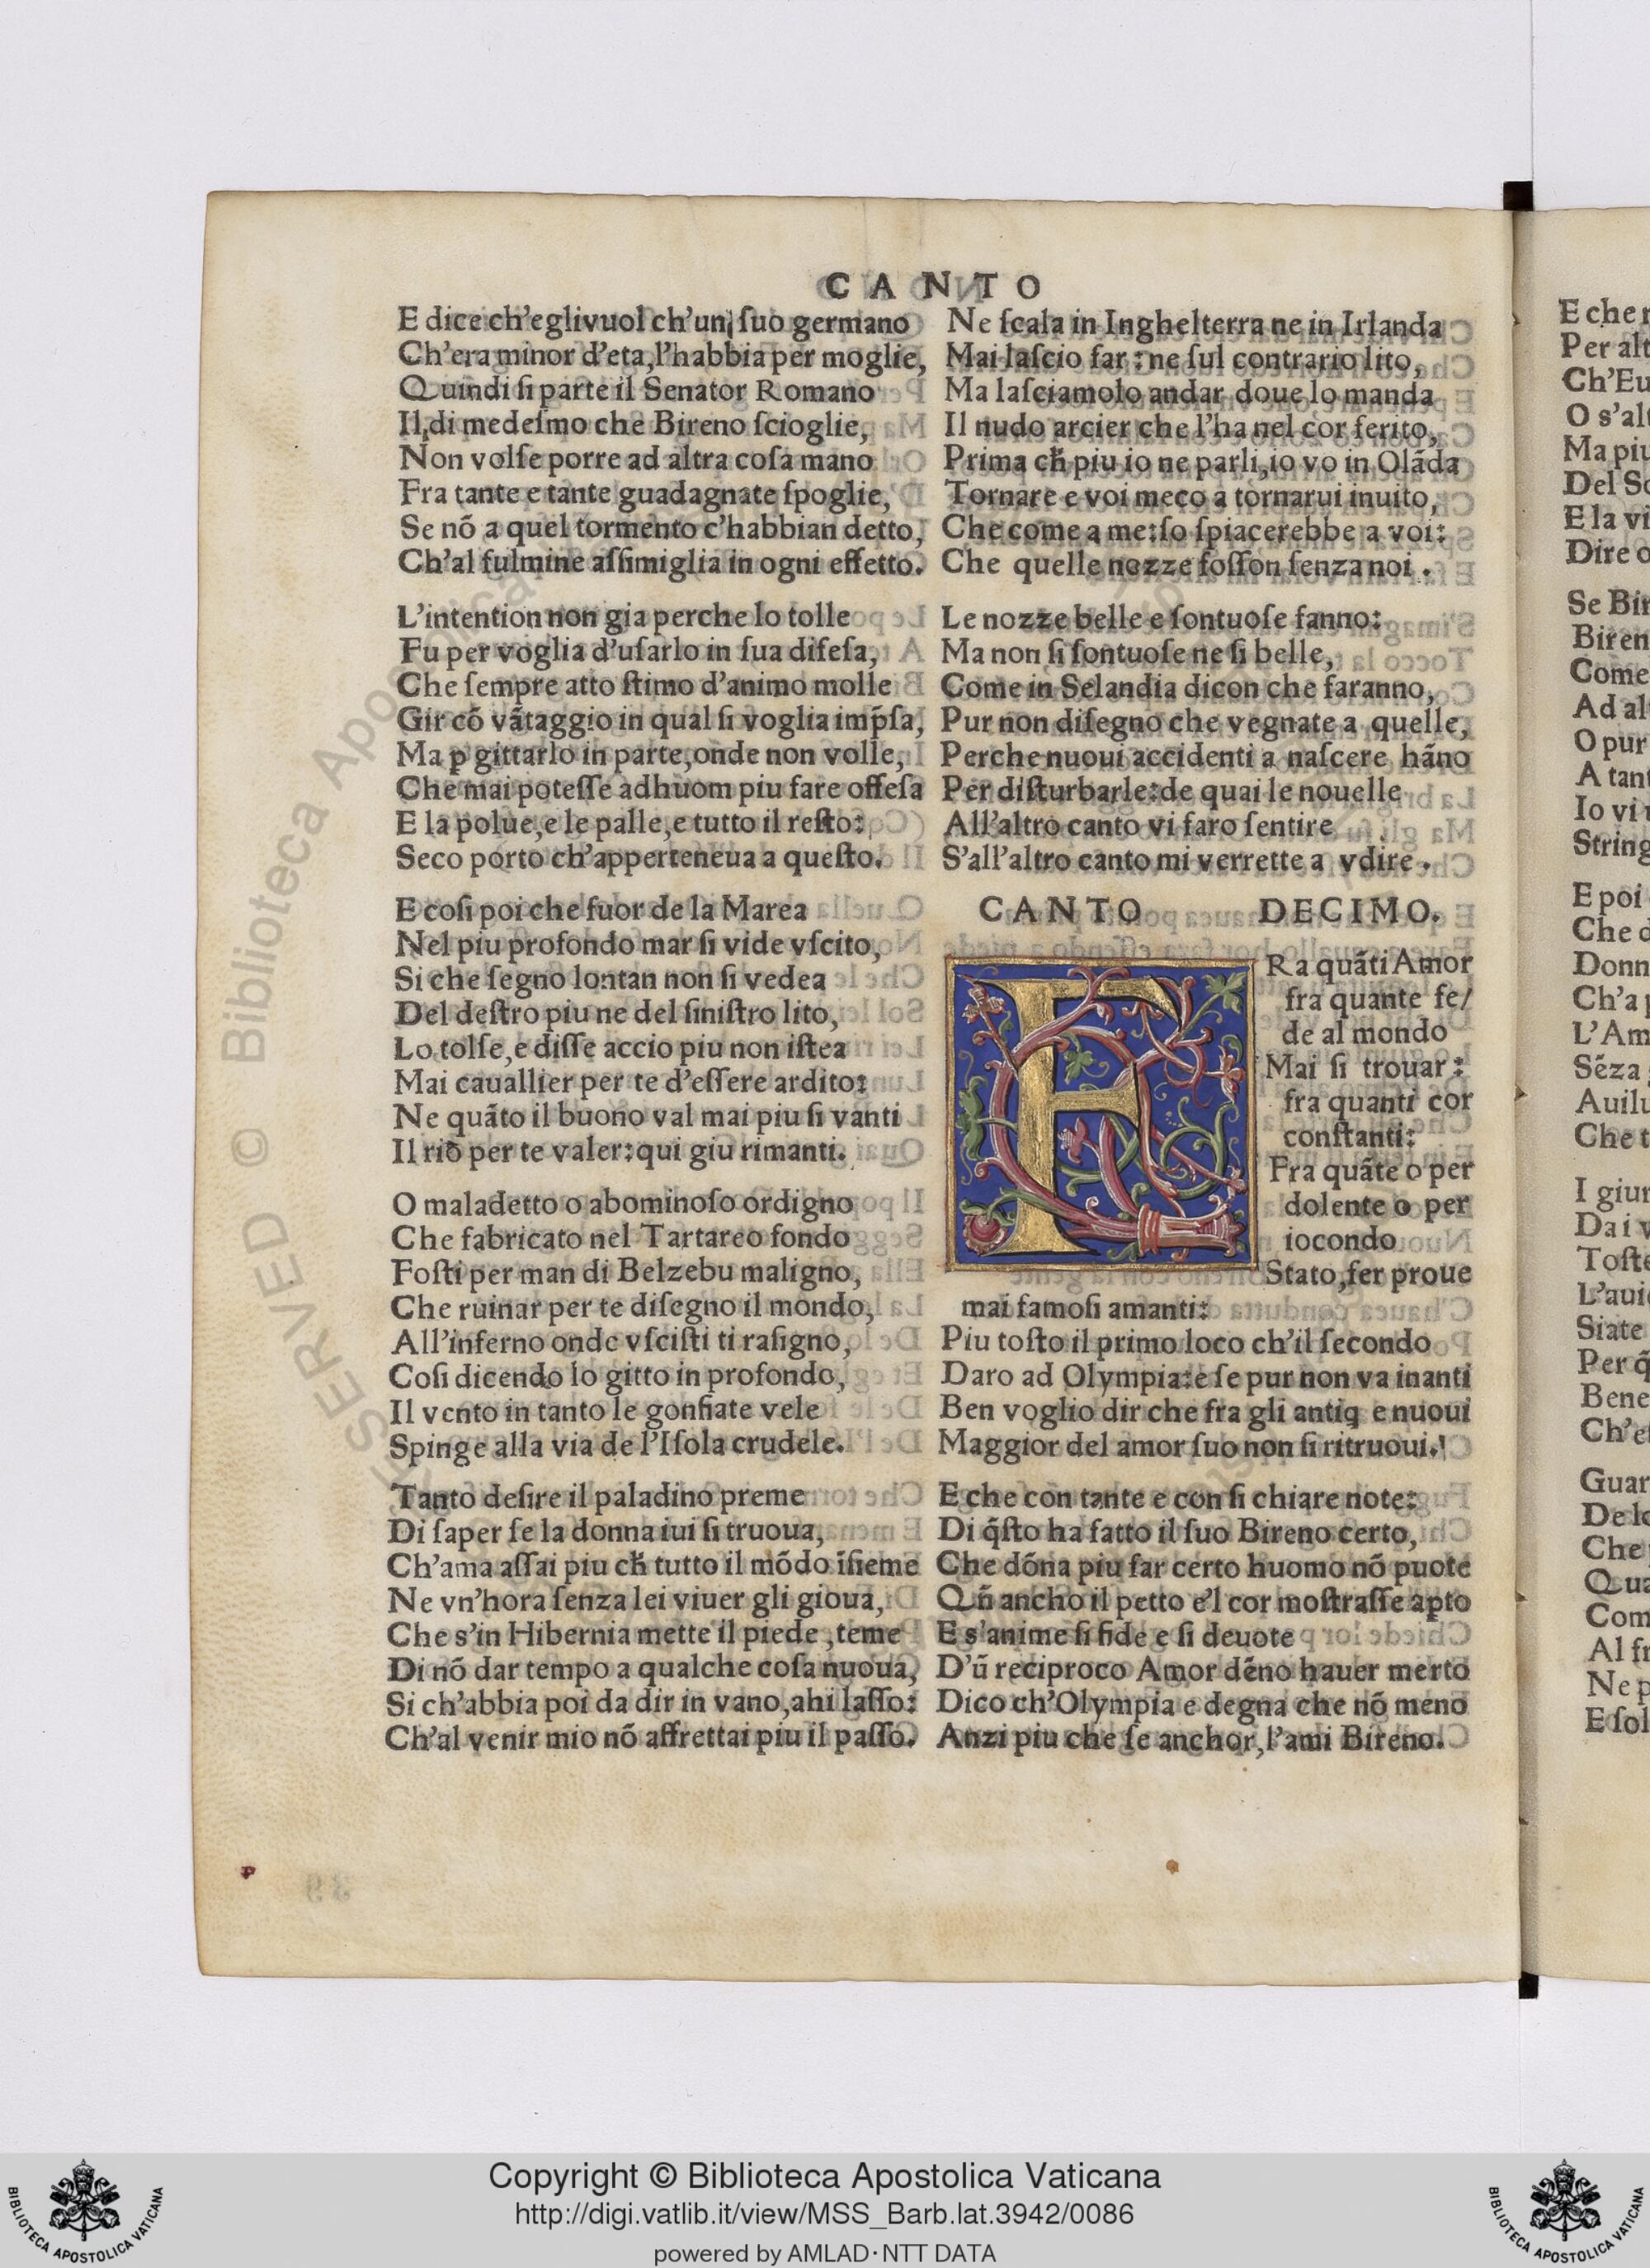 CANTO
E dice ch'eglivuol ch'un ſuo germano
Ch'era minor d'eta,l'habbia per moglie,
Quindi ſi parte il Senator Romano
Il di medeſmo che Bireno ſcioglie,
Non volſe porre ad altra coſa mano
Fra tante e tante guadagnate ſpoglie,
Se nõ a quel tormento c'habbian detto,
Ch'al fulmine aſſimiglia in ogni effetto.
L'intention non gia perche lo tolle
Fu per voglia d'uſarlo in ſua difeſa,
Che ſempre atto ſtimo d'animo molle
Gir cõ vãtaggio in qual ſi voglia imp̃ſa,
Ma ꝑ gittarlo in parte,onde non volle,
Che mai poteſſe adhuom piu fare offeſa
E la polue,e le palle,e tutto il reſto:
Seco porto ch'apperteneua a queſto.
E coſi poi che fuor de la Marea
Nel piu profondo mar ſi vide vſcito,
Si che ſegno lontan non ſi vedea
Del deſtro piu ne del ſiniſtro lito,
Lo tolſe,e diſſe accio piu non iſtea
Mai cauallier per te d'eſſere ardito:
Ne quãto il buono val mai piu ſi vanti
Il rio per te valer:qui giu rimanti.
O maladetto o abominoſo ordigno
Che fabricato nel Tartareo fondo
Foſti per man di Belzebu maligno,
Che ruinar per te diſegno il mondo,
All'inferno onde vſciſti ti raſigno,
Coſi dicendo lo gitto in profondo,
Il vento in tanto le gonfiate vele
Spinge alla via de l'Iſola crudele.
Tanto deſire il paladino preme
Di ſaper ſe la donna iui ſi truoua,
Ch'ama aſſai piu ch̃ tutto il mõdo iſ̃ieme
Ne vn'hora ſenza lei viuer gli gioua,
Che s'in Hibernia mette il piede ,teme
Di nõ dar tempo a qualche coſa nuoua,
Si ch'abbia poi da dir in vano,ahi laſſo:
Ch'al venir mio nõ affrettai piu il paſſo.
Ne ſcala in Inghelterra ne in Irlanda
Mai laſcio far : ne ſul contrario lito,
Ma laſciamolo andar doue lo manda
Il nudo arcier che l'ha nel cor ferito,
Prima ch̃ piu io ne parli,io vo in Olãda
Tornare e voi meco a tornarui inuito,
Che come a me:ſo ſpiacerebbe a voi:
Che quelle nozze foſſon ſenza noi .
Le nozze belle e ſontuoſe fanno:
Ma non ſi ſontuoſe ne ſi belle,
Come in Selandia dicon che faranno,
Pur non diſegno che vegnate a quelle,
Perche nuoui accidenti a naſcere hãno
Per diſturbarle:de quai le nouelle
All'altro canto vi faro ſentire
S'all'altro canto mi verrette a vdire .
CANTO DECIMO.
FRa quãti Amor
fra quante fe/
de al mondo
Mai ſi trouar :
fra quanti cor
conſtanti:
Fra quãte o per
dolente o per
iocondo
Stato,fer proue
mai famoſi amanti:
Piu toſto il primo loco ch'il ſecondo
Daro ad Olympia:e ſe pur non va inanti
Ben voglio dir che fra gli antiq̃ e nuoui
Maggior del amor ſuo non ſi ritruoui.
E che con tante e con ſi chiare note:
Di q̃ſto ha fatto il ſuo Bireno certo,
Che dõna piu far certo huomo nõ puote
Qñ ancho il petto e'l cor moſtraſſe apto
E s'anime ſi fide e ſi deuote
D'ũ reciproco Amor dẽno hauer merto
Dico ch'Olympia e degna che nõ meno
Anzi piu che ſe anchor,l'ami Bireno.
E che
Per alt
Ch'Eu
O s'alt
Ma piu
Del So
E la vi
Dire o
Se Bir
Biren
Come
Ad al
O pur
A tant
Io vi
String
E poi
Che d
Donn
Ch'a
L'Am
Sẽza
Auilu
Che t
I giur
Da i v
Toſte
L'aui
Siate
Per q̃
Bene
Ch'eſ
Guar
De lo
Che
Qua
Com
Al fr
Ne p
E ſol
RESERVED © Biblioteca Apostolica
Copyright © Biblioteca Apostolica Vaticana
http://digi.vatlib.it/view/MSS_Barb.lat.3942/0086
powered by AMLAD·NTT DATA
BIBLIOTECA APOSTOLICA VATICANA
BIBLIOTECA APOSTOLICA VATICANA